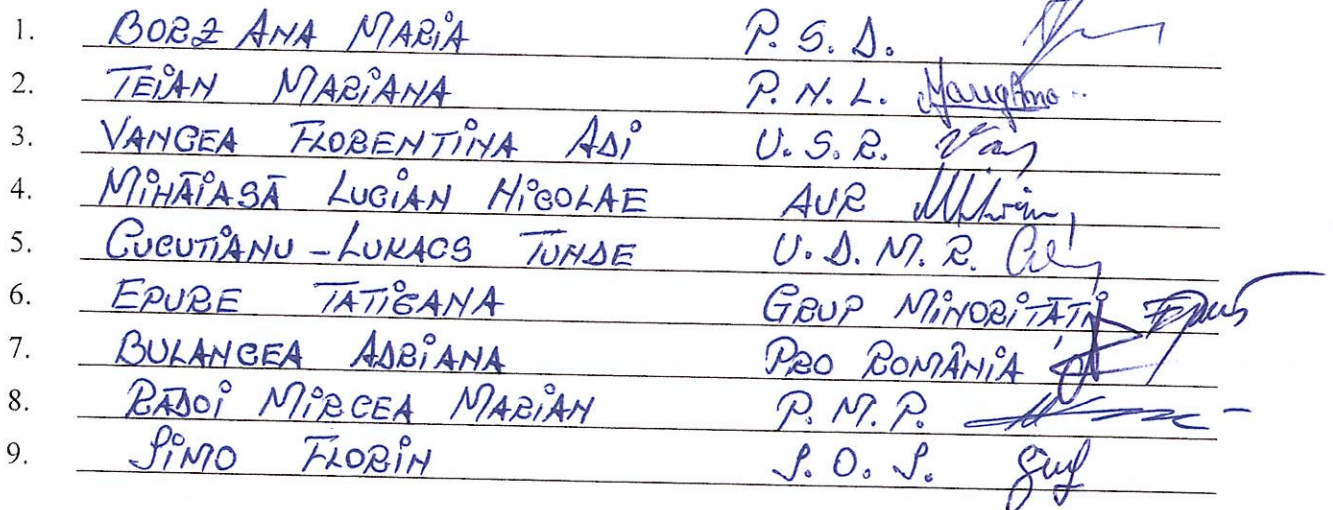 1. BORZ ANA MARIA P. S. D.
2. TEIAN MARIANA P. N. L.
3. VANCEA FLORENTINA ADI U. S. R.
4. MIHĂIASĂ LUCIAN NICOLAE AUR
5. CUCUTIANU-LUKACS TUNDE U. D. M. R.
6. EPURE TATIEANA GRUP MINORITĂȚI
7. BULANCEA ADRIANA PRO ROMÂNIA
8. RĂDOI MIRCEA MARIAN P. M. P.
9. SIMO FLORIN S. O. S.